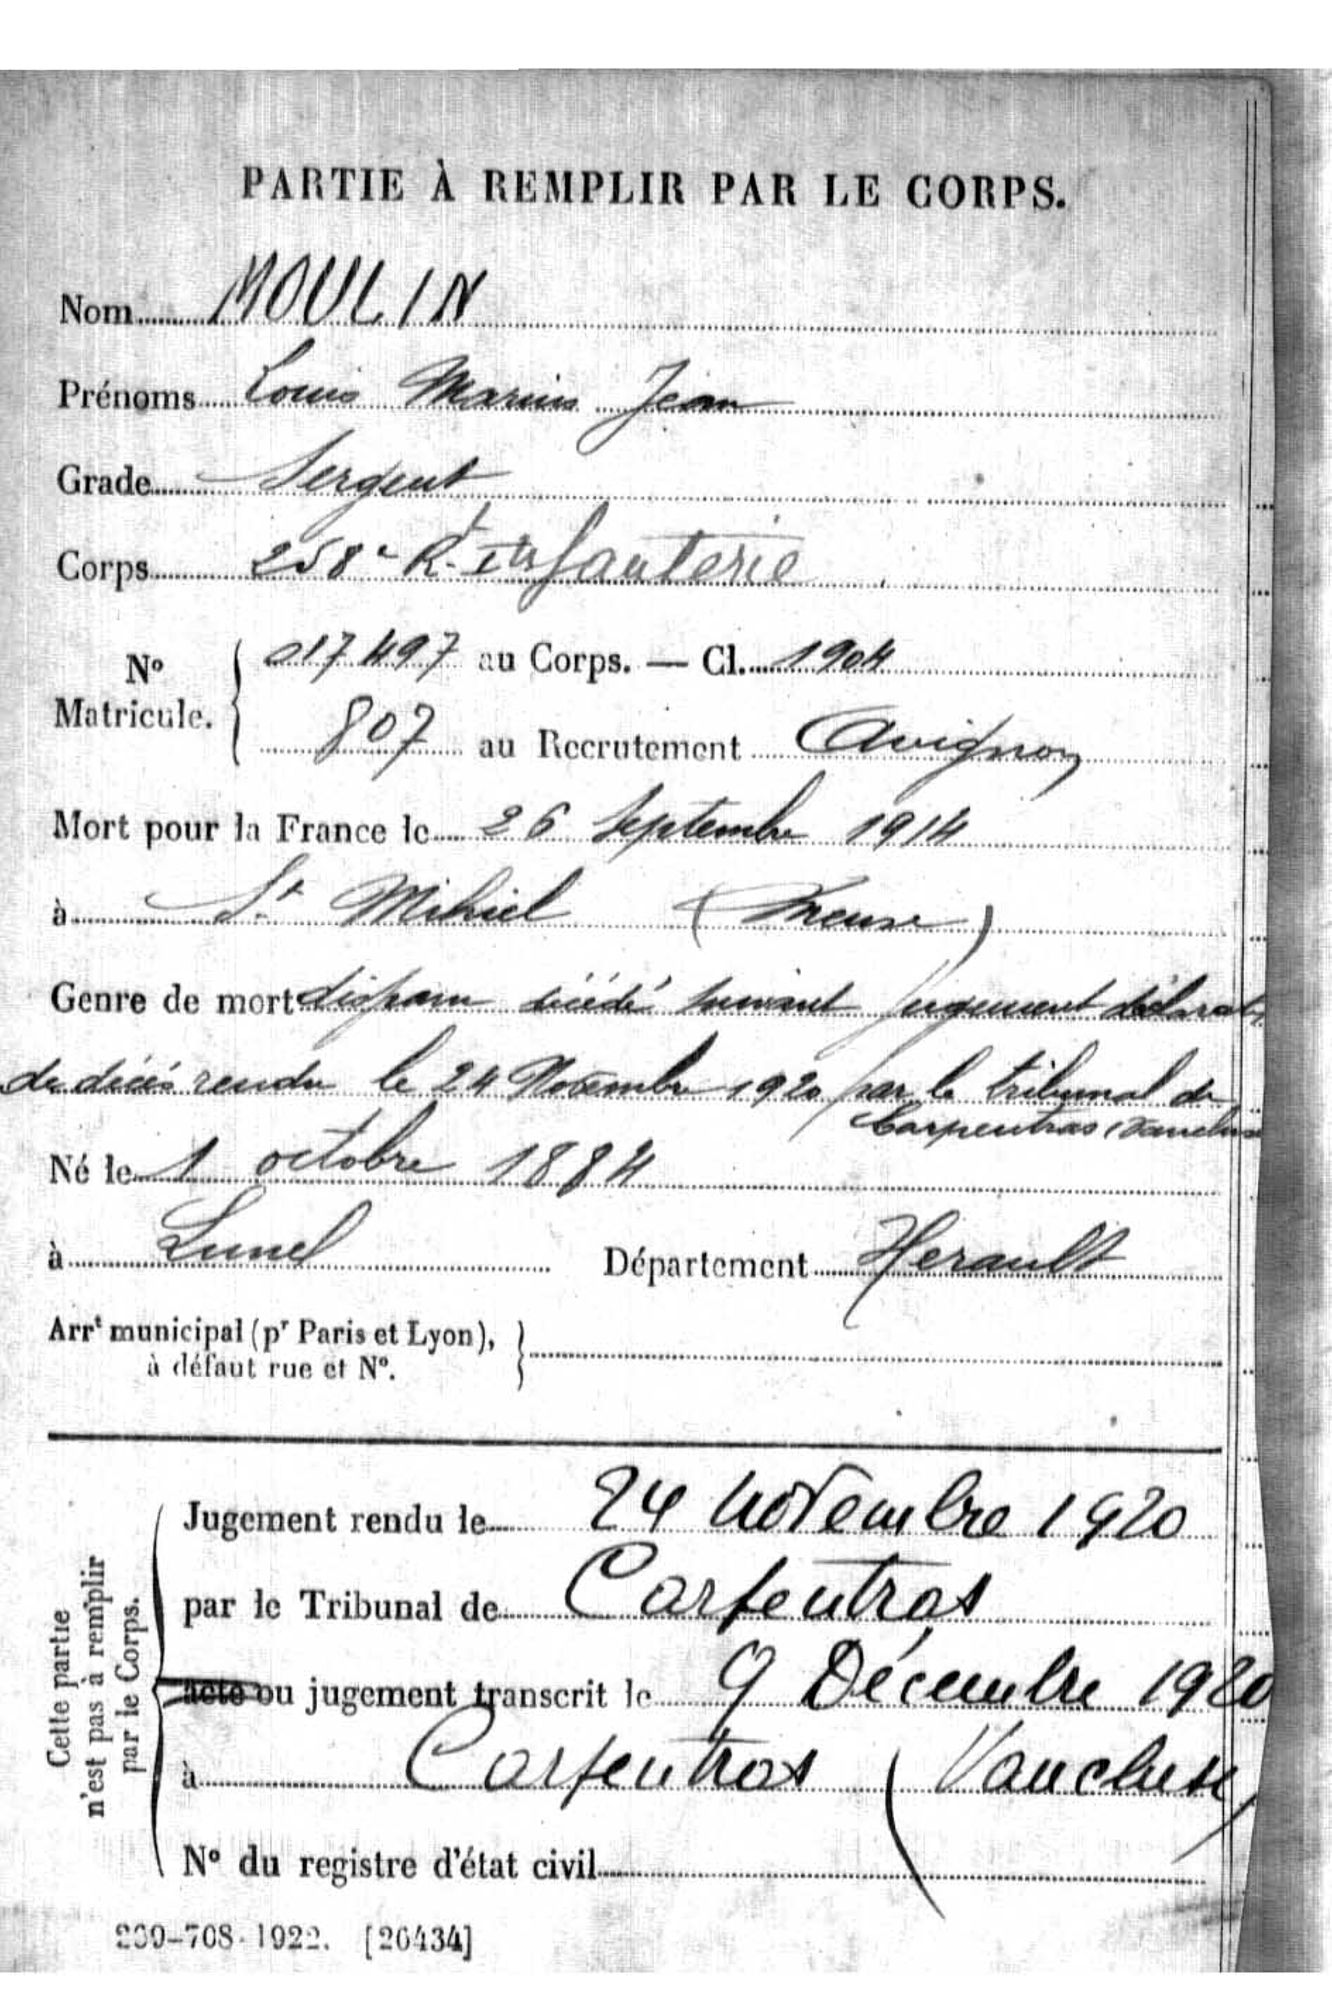 PARTIE À REMPLIR PAR LE CORPS.
Nom MOULIN
Prénoms Louis Marius Jean
Grade Sergent
Corps 258e R. Infanterie
No Matricule. 017497 au Corps. — Cl. 1904
807 au Recrutement Avignon
Mort pour la France le 26 Septembre 1914
à St Mihiel (Meuse)
Genre de mort disparu décédé suivant jugement déclarat.
de décès rendu le 24 Novembre 1920 par le tribunal de
Carpentras (Vaucluse
Né le 1 octobre 1884
à Lunel Département Herault
Arrt municipal (pr Paris et Lyon),
à défaut rue et No.
Cette partie
n'est pas à remplir
par le Corps.
Jugement rendu le 24 novembre 1920
par le Tribunal de Carpentras
acte ou jugement transcrit le 9 Décembre 1920
à Carpentras (Vaucluse)
No du registre d'état civil
269-708-1922. [26434]